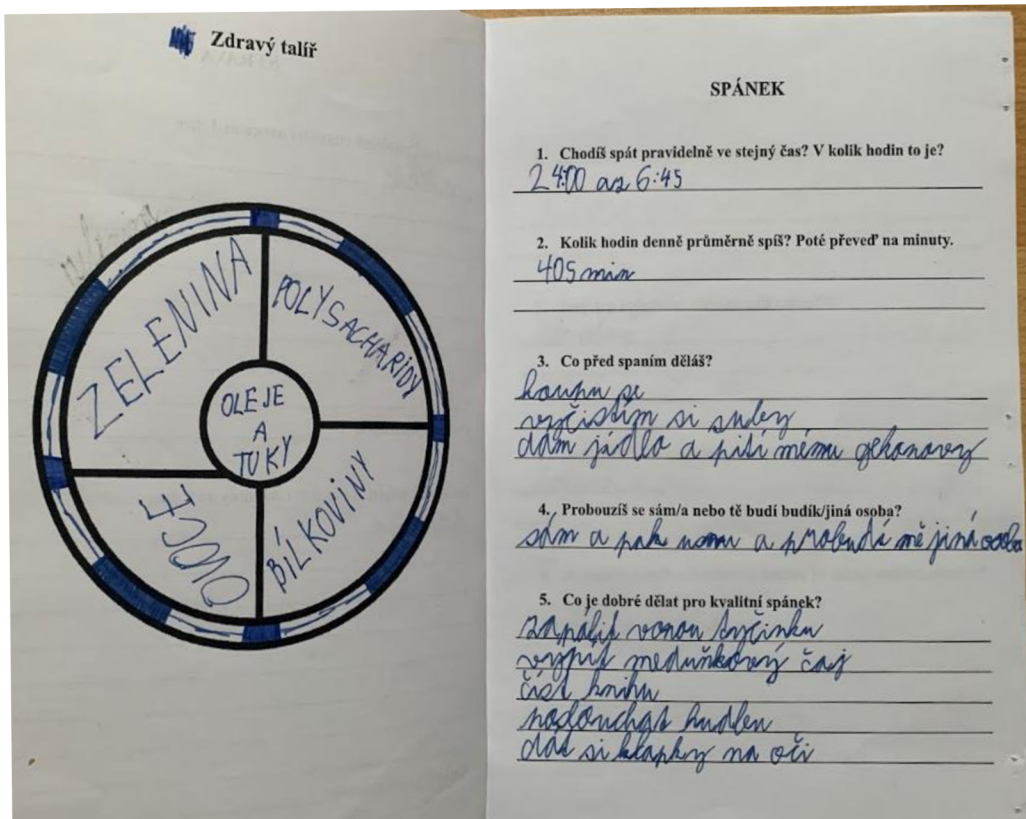 Zdravý talíř
ZELENINA
POLYSACHARIDY
OLEJE
A
TUKY
OVOCE
BÍLKOVINY
SPÁNEK
1. Chodíš spát pravidelně ve stejný čas? V kolik hodin to je?
24:00 az 6:45
2. Kolik hodin denně průměrně spíš? Poté převeď na minuty.
405 min
3. Co před spaním děláš?
koupu se
vyčistím si zuby
dám jídlo a pití mému gekonovy
4. Probouzíš se sám/a nebo tě budí budík/jiná osoba?
sám a pak usnu a probudí mě jiná osoba
5. Co je dobré dělat pro kvalitní spánek?
zapálit vonou tyčinku
vypít meduňkový čaj
číst knihu
poslouchat hudbu
dát si klapky na oči